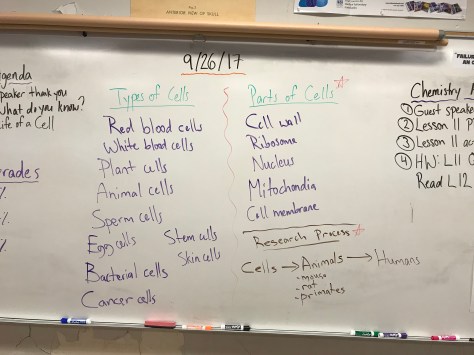 9/26/17
genda
peaker thank you
What do you know?
ife of a Cell
rades
%
%
%
Types of Cells
Red blood cells
White blood cells
Plant cells
Animal cells
Sperm cells
Egg cells
Stem cells
Skin cells
Bacterial cells
Cancer cells
Parts of Cells
Cell wall
Ribosome
Nucleus
Mitochondia
Cell membrane
Research Process
Cells → Animals → Humans
- mouse
- rat
- primates
Chemistry
① Guest speake
② Lesson 11 P
③ Lesson 11 ac
④ HW: L11
Read L12
FAILUR
AN O